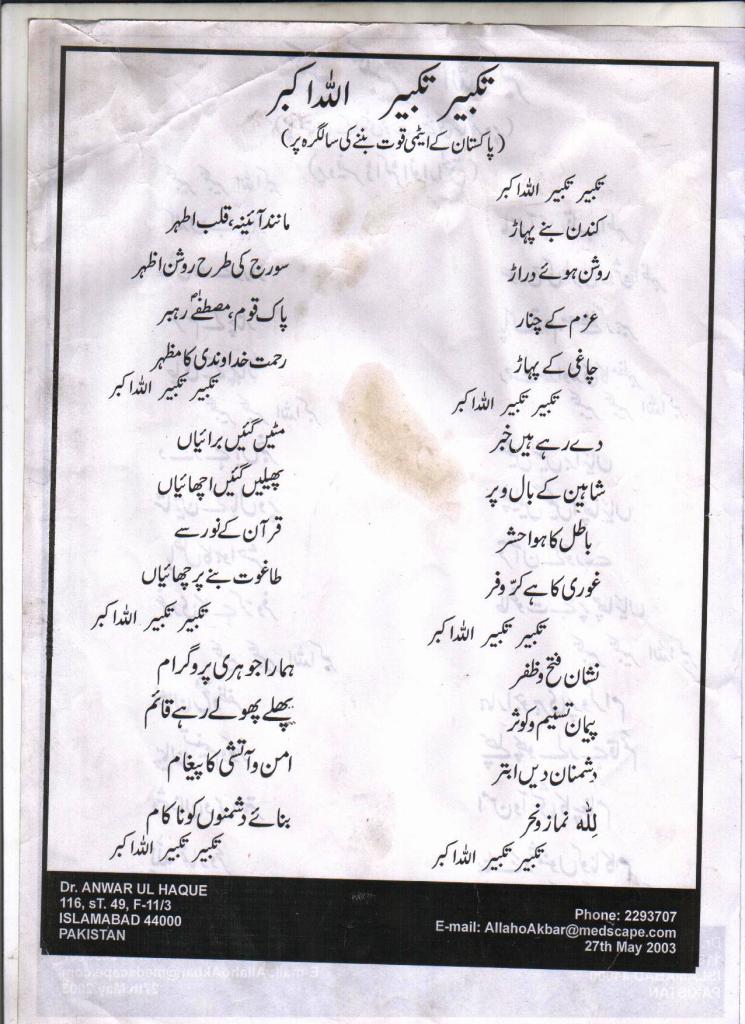 تکبیر تکبیر اللہ اکبر
(پاکستان کے ایٹمی قوت بننے کی سالگرہ پر)
تکبیر تکبیر اللہ اکبر
کندن بنے پہاڑ
روشن ہوئے دراڑ
عزم کے چنار
چاغی کے پہاڑ
تکبیر تکبیر اللہ اکبر
دے رہے ہیں خبر
شاہین کے بال و پر
باطل کا ہوا حشر
غوری کا ہے کرّ و فر
تکبیر تکبیر اللہ اکبر
نشان فتح و ظفر
پیمان تسنیم و کوثر
دشمنان دیں ابتر
لِلّٰہ نماز و نحر
تکبیر تکبیر اللہ اکبر
مانند آئینہ، قلب اطہر
سورج کی طرح روشن اظہر
پاک قوم، مصطفٰیؐ رہبر
رحمت خداوندی کا مظہر
تکبیر تکبیر اللہ اکبر
مٹیں گئیں برائیاں
پھیلیں گئیں اچھائیاں
قرآن کے نور سے
طاغوت بنے پرچھائیاں
تکبیر تکبیر اللہ اکبر
ہمارا جوہری پروگرام
پھلے پھولے رہے قائم
امن و آتشی کا پیغام
بنائے دشمنوں کو ناکام
تکبیر تکبیر اللہ اکبر
Dr. ANWAR UL HAQUE
116, sT. 49, F-11/3
ISLAMABAD 44000
PAKISTAN
Phone: 2293707
E-mail: AllahoAkbar@medscape.com
27th May 2003